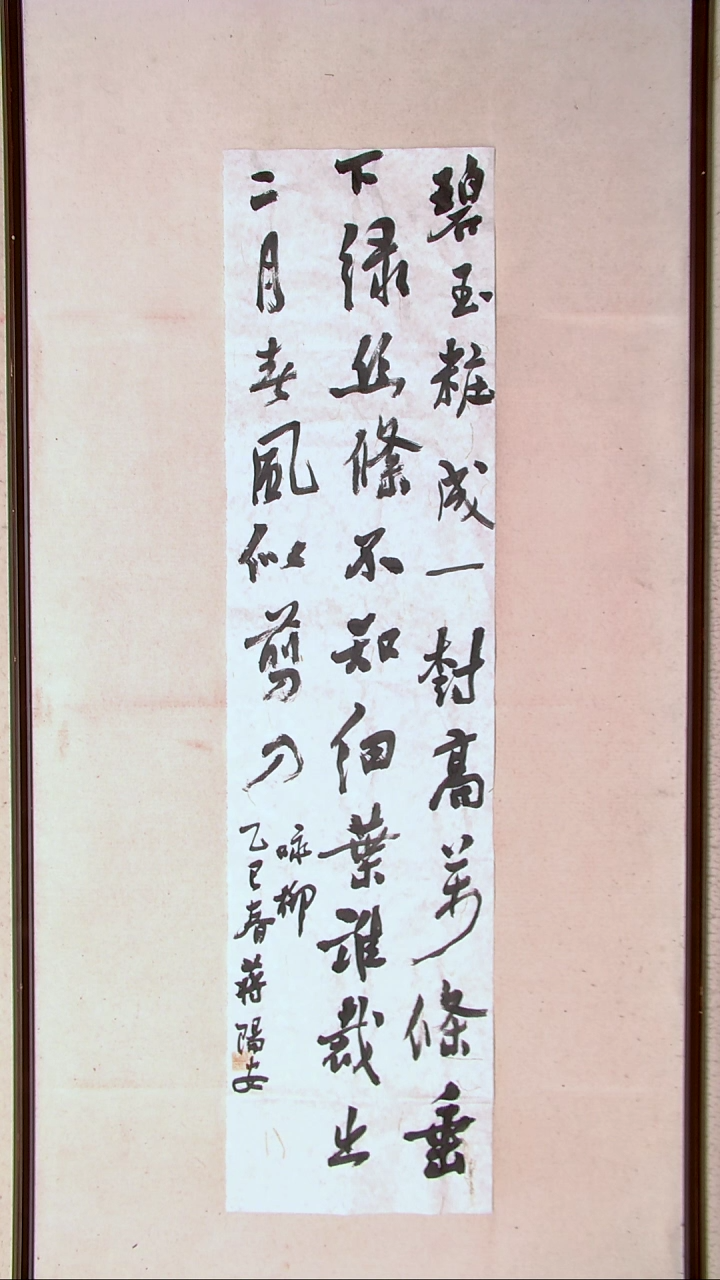 碧玉粧成一樹高萬條垂
下緑丝條不知細葉誰裁出
二月春風似剪刀
咏柳
乙巳春蔣陽安